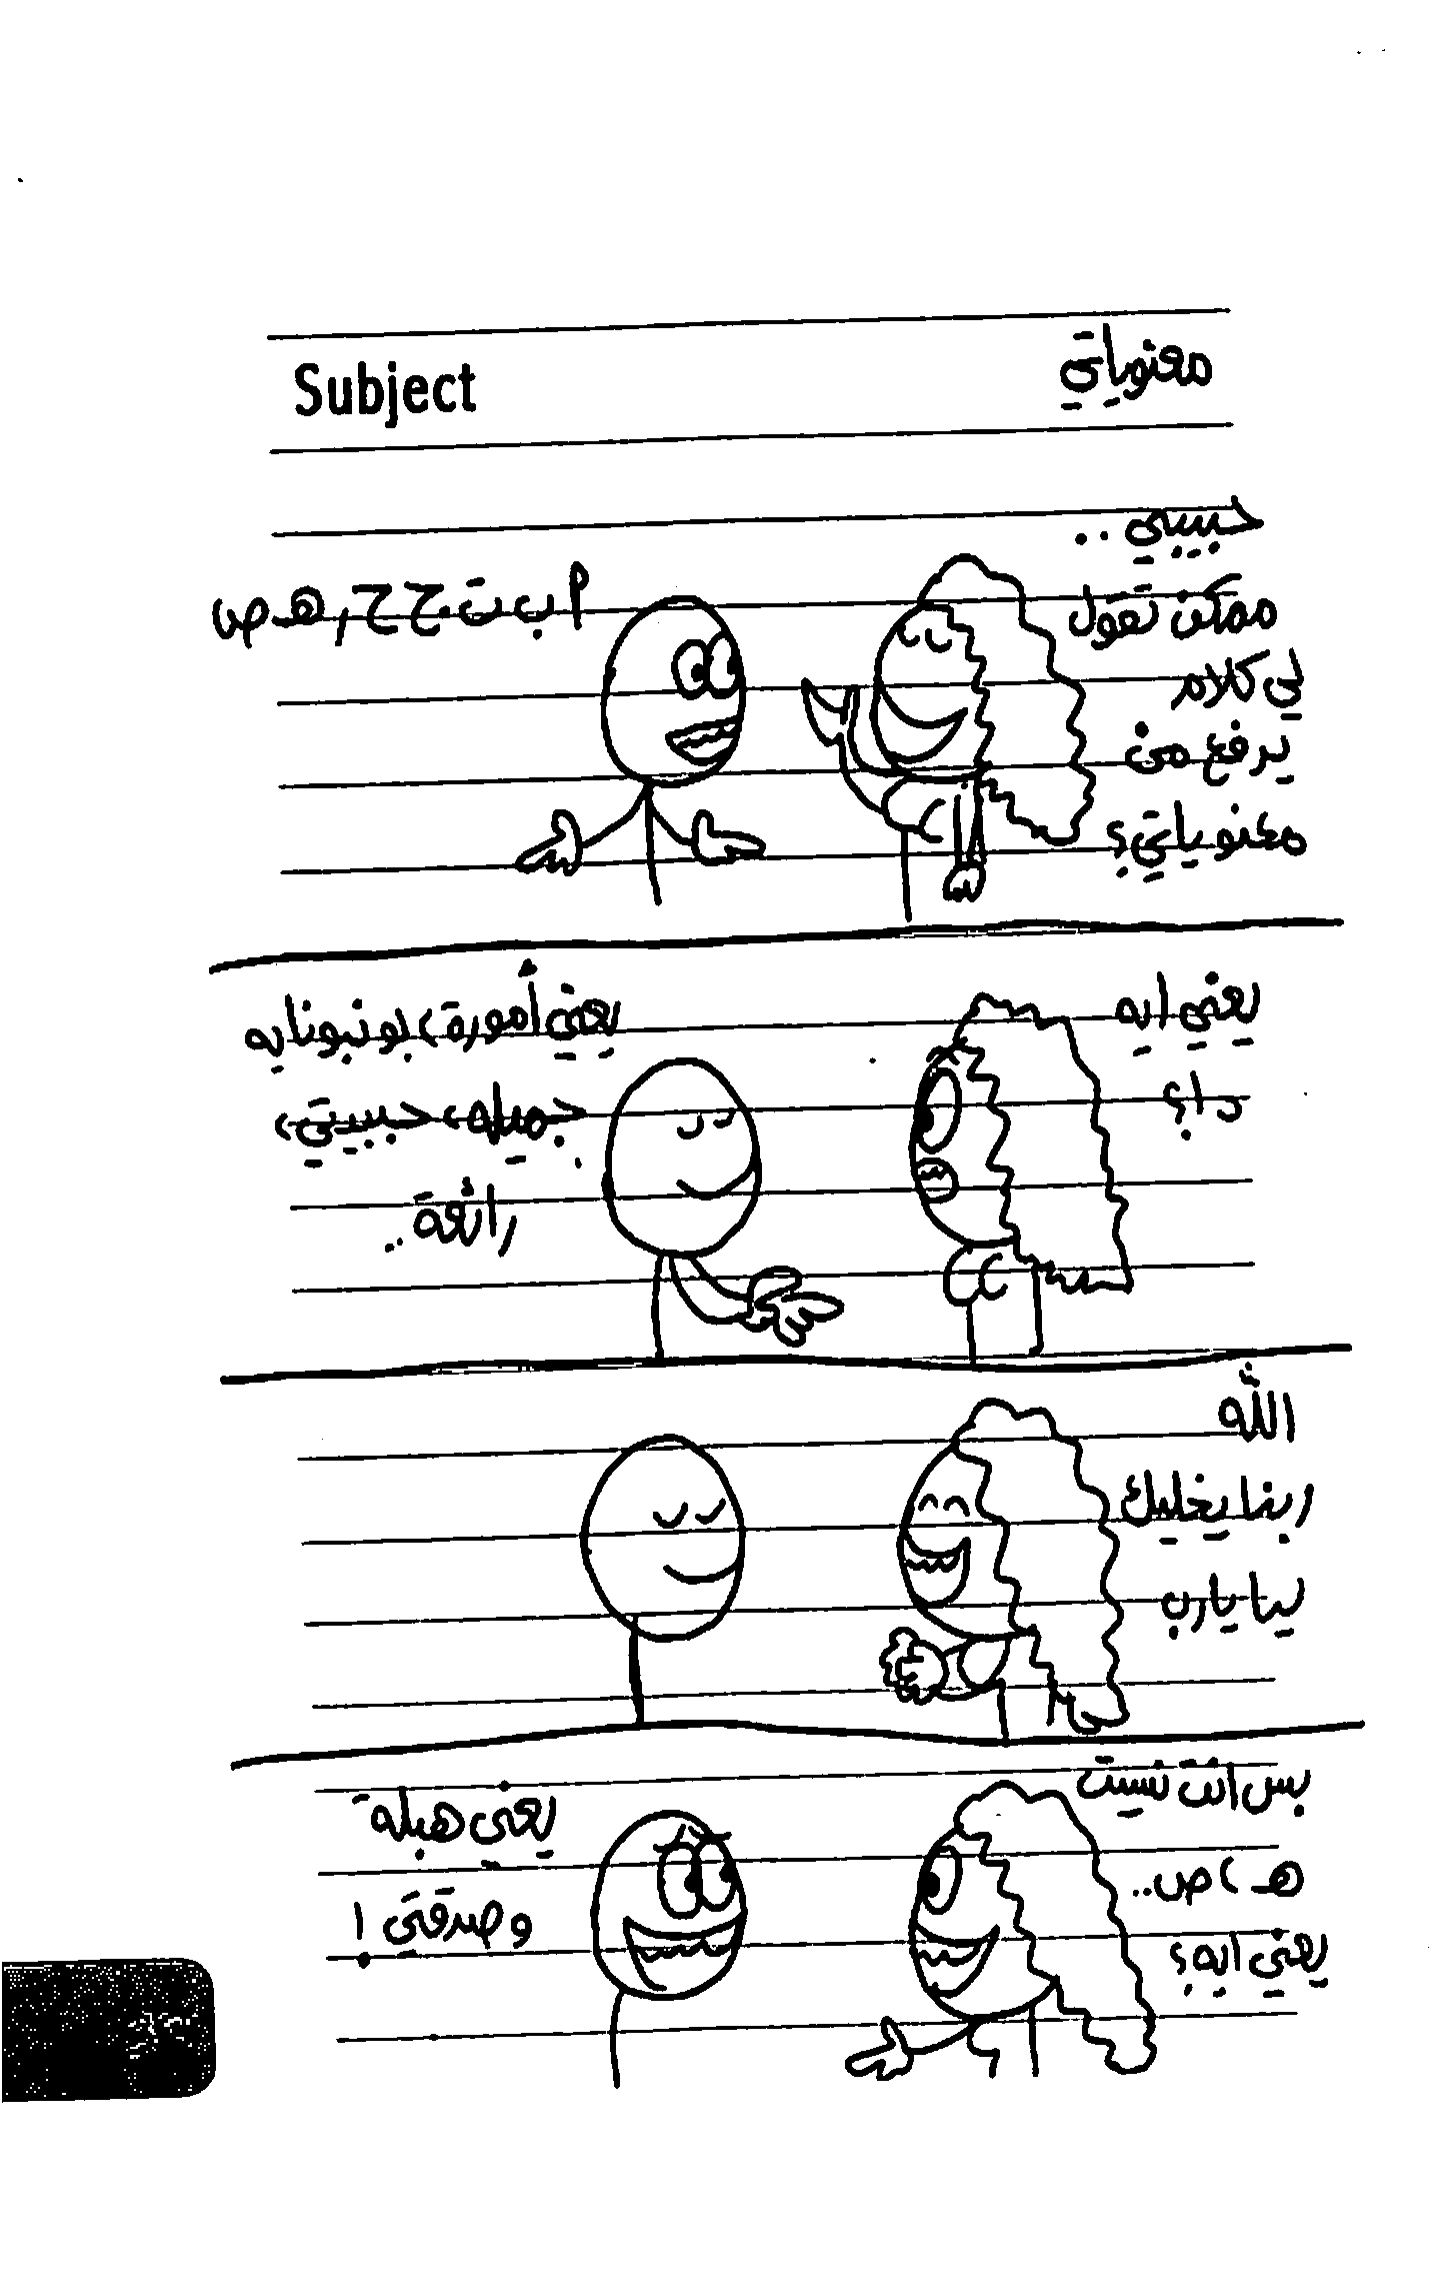 Subject
معنوياتي
حبيبي ..
ممكن تقول
لي كلام
يرفع من
معنوياتي؟
أ ب ت ج ح ر هـ ص
يعني ايه
دا؟
يعني أمورة، بونبوناية
جميلة، حبيبتي،
رائعة ..
الله
ربنا يخليك
ليا يارب
بس انت نسيت
هـ ، ص ..
يعني ايه؟
يعني هبلة
وصدقتي !